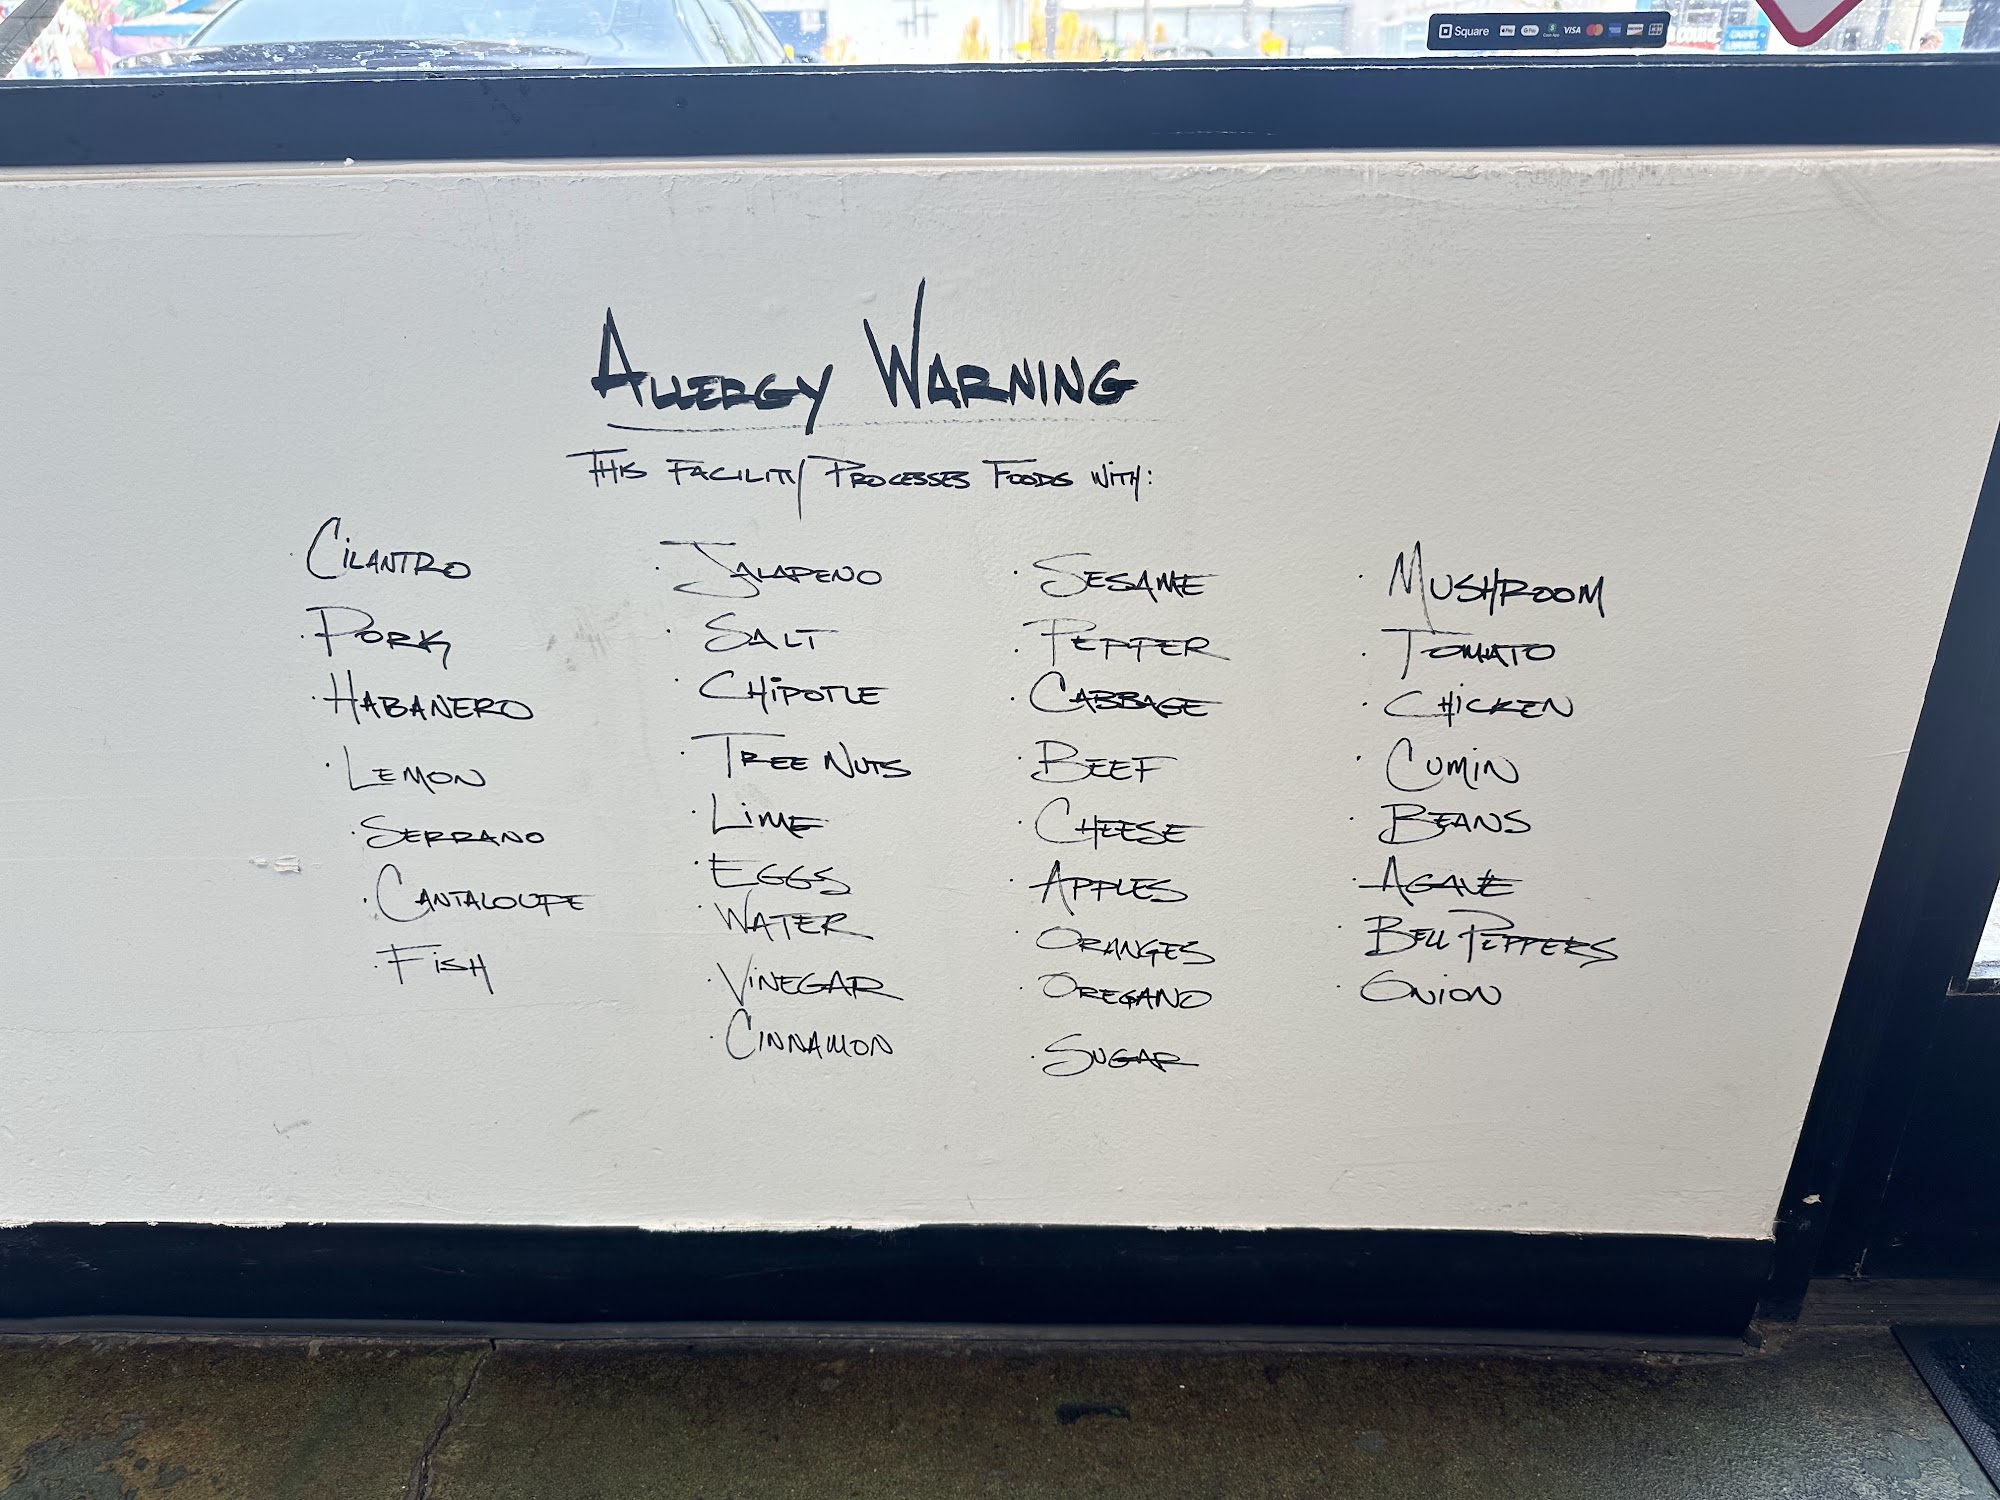 Square VISA
ALLERGY WARNING
THIS FACILITY PROCESSES FOODS WITH:
· CILANTRO
· PORK
· HABANERO
· LEMON
· SERRANO
· CANTALOUPE
· FISH
· JALAPENO
· SALT
· CHIPOTLE
· TREE NUTS
· LIME
· EGGS
· WATER
· VINEGAR
· CINNAMON
· SESAME
· PEPPER
· CABBAGE
· BEEF
· CHEESE
· APPLES
· ORANGES
· OREGANO
· SUGAR
· MUSHROOM
· TOMATO
· CHICKEN
· CUMIN
· BEANS
· AGAVE
· BELL PEPPERS
· ONION